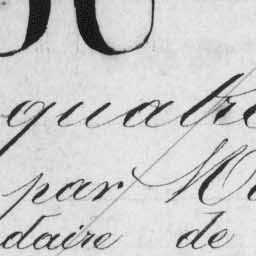 quatre
par
daire de